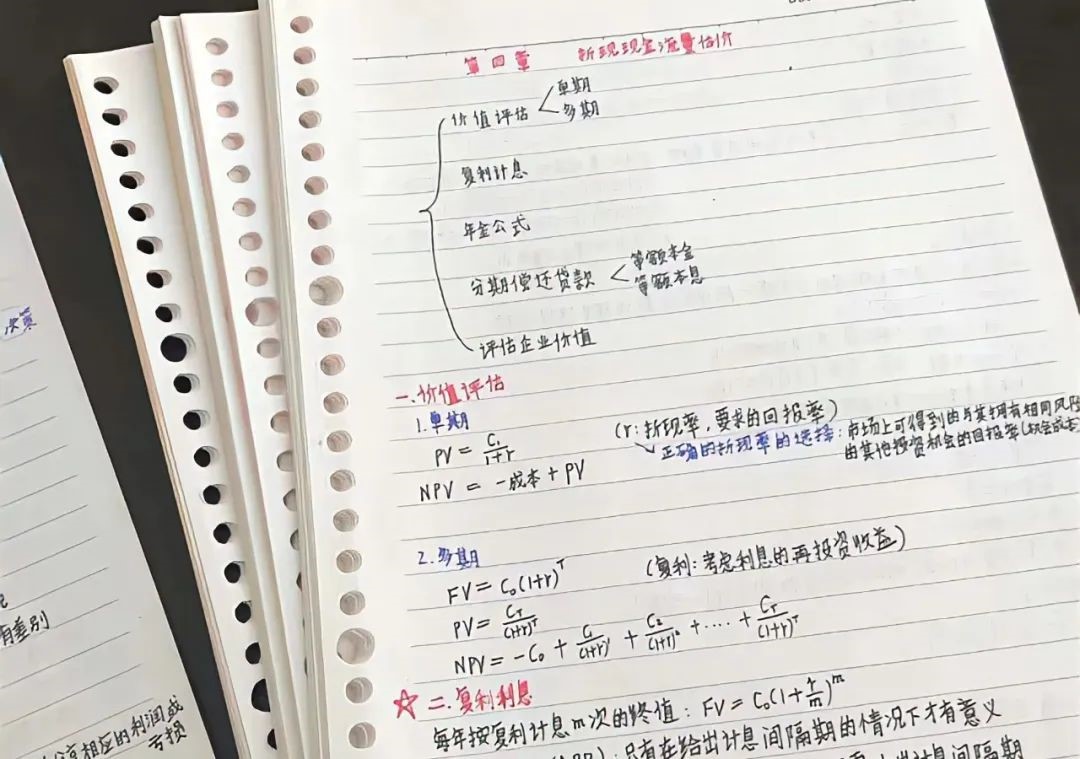 第四章 折现现金流量估价
价值评估
单期
多期
复利计息
年金公式
分期偿还贷款
等额本金
等额本息
评估企业价值
一.价值评估
1.单期
PV = C₁/(1+r) (r:折现率,要求的回报率)
正确的折现率的选择:市场上可得到的与其拥有相同风险
的其他投资机会的回报率(机会成本
NPV = -成本 + PV
2.多期
FV = C₀(1+r)ᵀ (复利:考虑利息的再投资收益)
PV = C_T/(1+r)ᵀ
NPV = -C₀ + C₁/(1+r)¹ + C₂/(1+r)² + .... + C_T/(1+r)ᵀ
☆ 二.复利利息
每年按复利计息m次的终值:FV = C₀(1+r/m)ᵐ
:只有在给出计息间隔期的情况下才有意义
出计息间隔期
次质
有差别
相应的利润或
亏损